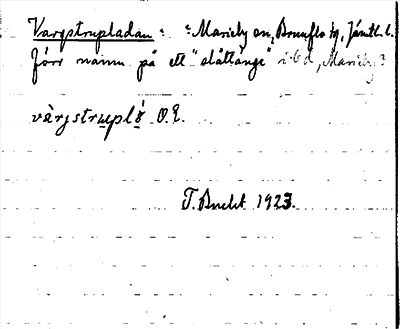 Vargstrupladan: Marieby sn, Brunflo tg, Jämtl. l.
Förr namn på ett "slåttänge" ibd, Marieby?
vàrjstrupló O.E.
T. Bucht 1923.